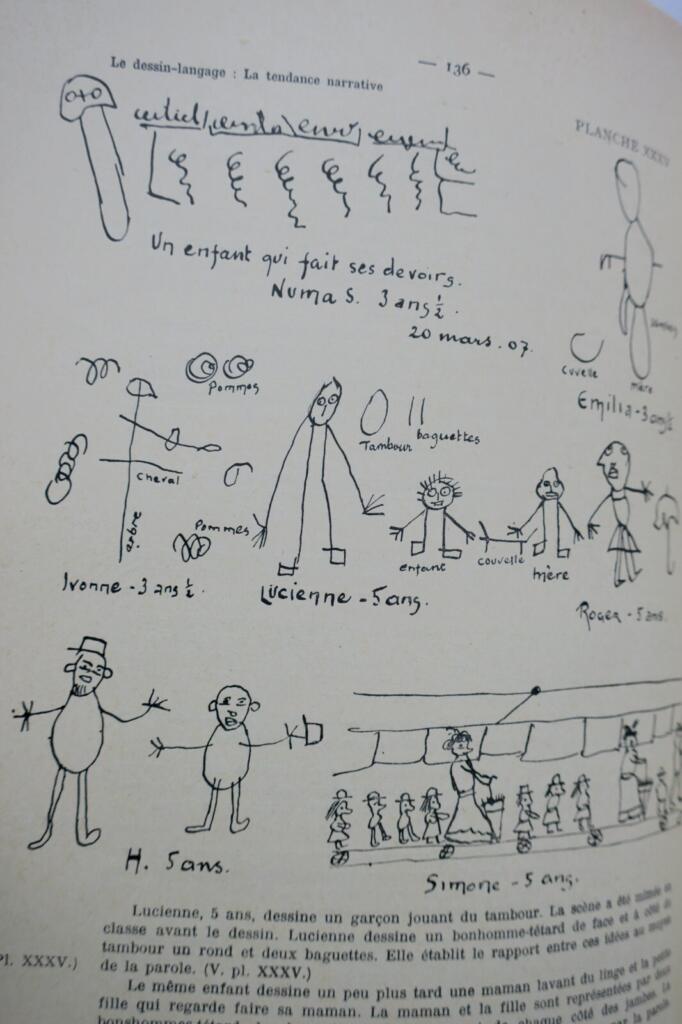 — 136 —
Le dessin-langage : La tendance narrative
PLANCHE XXXV
Un enfant qui fait ses devoirs.
Numa S. 3 ans ½.
20 mars. 07.
cuvelle
mère
Emilia - 3 ans ½
Pommes
cheval
Pommes
arbre
Ivonne - 3 ans ½.
Tambour
baguettes
enfant
couvelle
mère
Lucienne - 5 ans.
Roger - 5 ans.
H. 5 ans.
Simone - 5 ans.
Lucienne, 5 ans, dessine un garçon jouant du tambour. La scène a été mimée en
classe avant le dessin. Lucienne dessine un bonhomme-têtard de face et à côté du
tambour un rond et deux baguettes. Elle établit le rapport entre ces idées au moyen
de la parole. (V. pl. XXXV.)
Pl. XXXV.)
Le même enfant dessine un peu plus tard une maman lavant du linge et la petite
fille qui regarde faire sa maman. La maman et la fille sont représentées par deux
bonshommes-têtards de chaque côté des jambes. La
par la parole